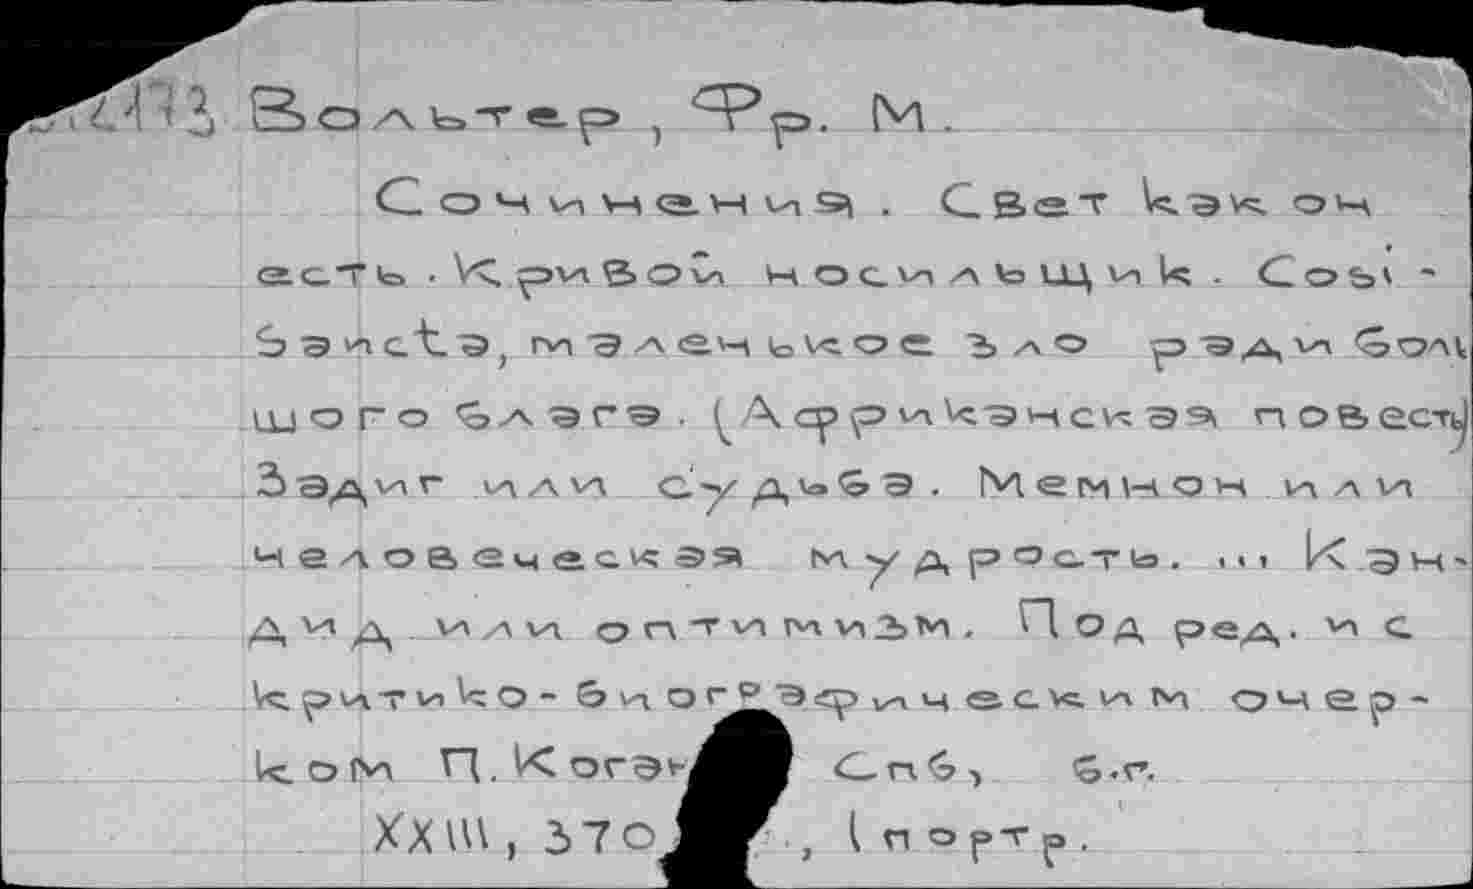 Вольтер, Фр. М.
Сочинения. Свет как он
есть. Кривой носильщик. Cosi -
Sancta, маленькое зло ради боль
шого блага. (Африканская повесть)
Задиг или судьба. Мемнон или
человеческая мудрость. ... Кан-
дид или оптимизм. Под ред. и с
критико-биографическим очер-
ком П. Коган Спб, б.г.
XXIII, 370 , 1 портр.